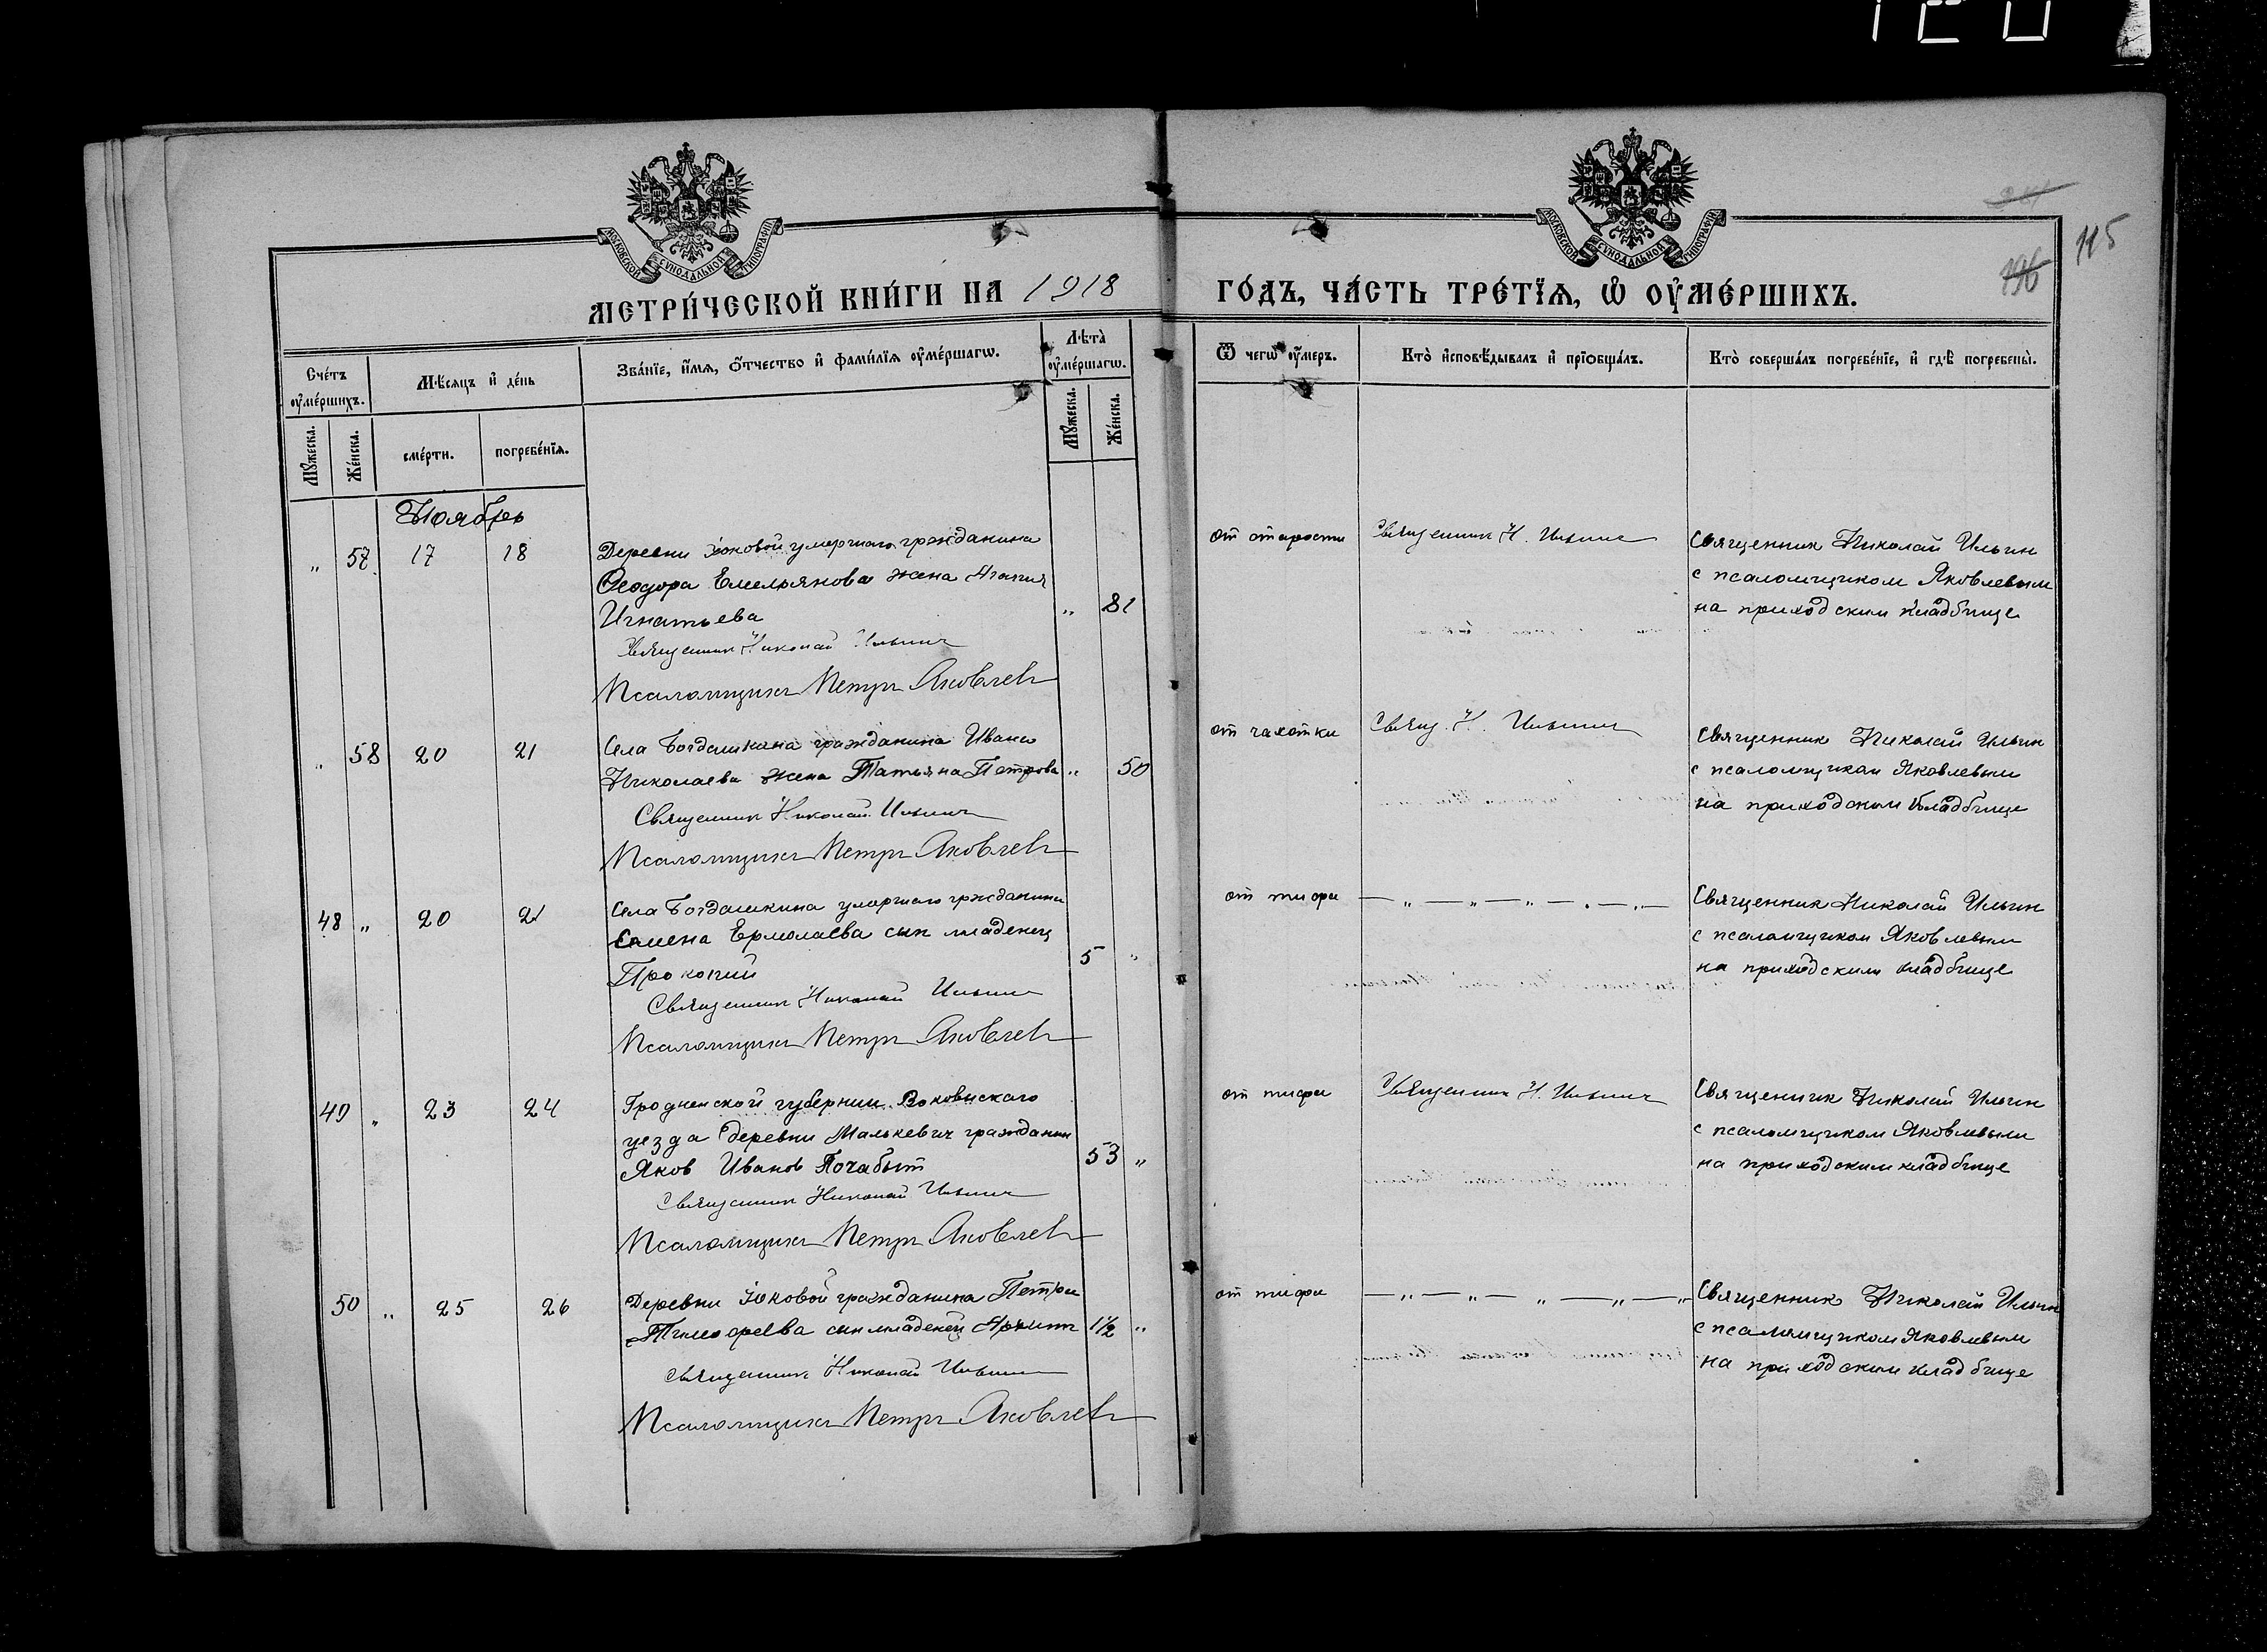 МОСКОВСКОЙ СУНОДАЛЬНОЙ ТИПОГРАФІИ
МОСКОВСКОЙ СУНОДАЛЬНОЙ ТИПОГРАФІИ
115
196
МЕТРИ́ЧЕСКОЙ КНИ́ГИ НА 1918
ГО́ДЪ, ЧА́СТЬ ТРЕ́ТЇѦ, Ѡ҆ ОУ҆МЕ́РШИХЪ.
Сче́тъ оу҆ме́ршихъ.
Мѣ́сѧцъ и҆ де́нь
Зва́нїе, и҆́мѧ, ѻ҆́тчество и҆ фами́лїѧ оу҆ме́ршагѡ.
Лѣта̀ оу҆ме́ршагѡ.
Ѿ чегѡ̀ оу҆́меръ.
Кто̀ и҆сповѣ́дывалъ и҆ прїѡбща́лъ.
Кто̀ соверша́лъ погребе́нїе, и҆ гдѣ̀ погребены̀.
Мꙋ́жеска.
Же́нска.
сме́рти.
погребе́нїѧ.
Мꙋ́жеска.
Же́нска.
Ноябрь
„ 57 17 18
Деревни Юковой умершаго гражданина
Феодора Емельянова жена Агапия
Игнатьева „ 81
Священник Николай Ильин
Псаломщикъ Петръ Яковлевъ
от старости
Священник Н. Ильин
Священник Николай Ильин
с псаломщиком Яковлевым
на приходским кладбище
„ 58 20 21
Села Богдашкина гражданина Ивана
Николаева жена Татьяна Петрова „ 50
Священник Николай Ильин
Псаломщикъ Петръ Яковлевъ
от чахотки
Свящ. Н. Ильин
Священник Николай Ильин
с псаломщиком Яковлевым
на приходском кладбище
48 „ 20 21
Села Богдашкина умершаго гражданина
Семена Ермолаева сын младенец
Прокопий 5 „
Священник Николай Ильин
Псаломщикъ Петръ Яковлевъ
от тифа
— „ — „ — „ — „ — „ —
Священник Николай Ильин
с псаломщиком Яковлевым
на приходским кладбище
49 „ 23 24
Гродненской губернии Воковыскаго
уезда деревни Малькевич гражданин
Яков Иванов Почабыт 53 „
Священник Николай Ильин
Псаломщикъ Петръ Яковлевъ
от тифа
Священник Н. Ильин
Священник Николай Ильин
с псаломщиком Яковлевым
на приходским кладбище
50 „ 25 26
Деревни Юковой гражданина Петра
Тимофеева сын младенец Архип 1½ „
Священник Николай Ильин
Псаломщикъ Петръ Яковлевъ
от тифа
— „ — „ — „ — „ — „
Священник Николай Ильин
с псаломщиком Яковлевым
на приходским кладбище